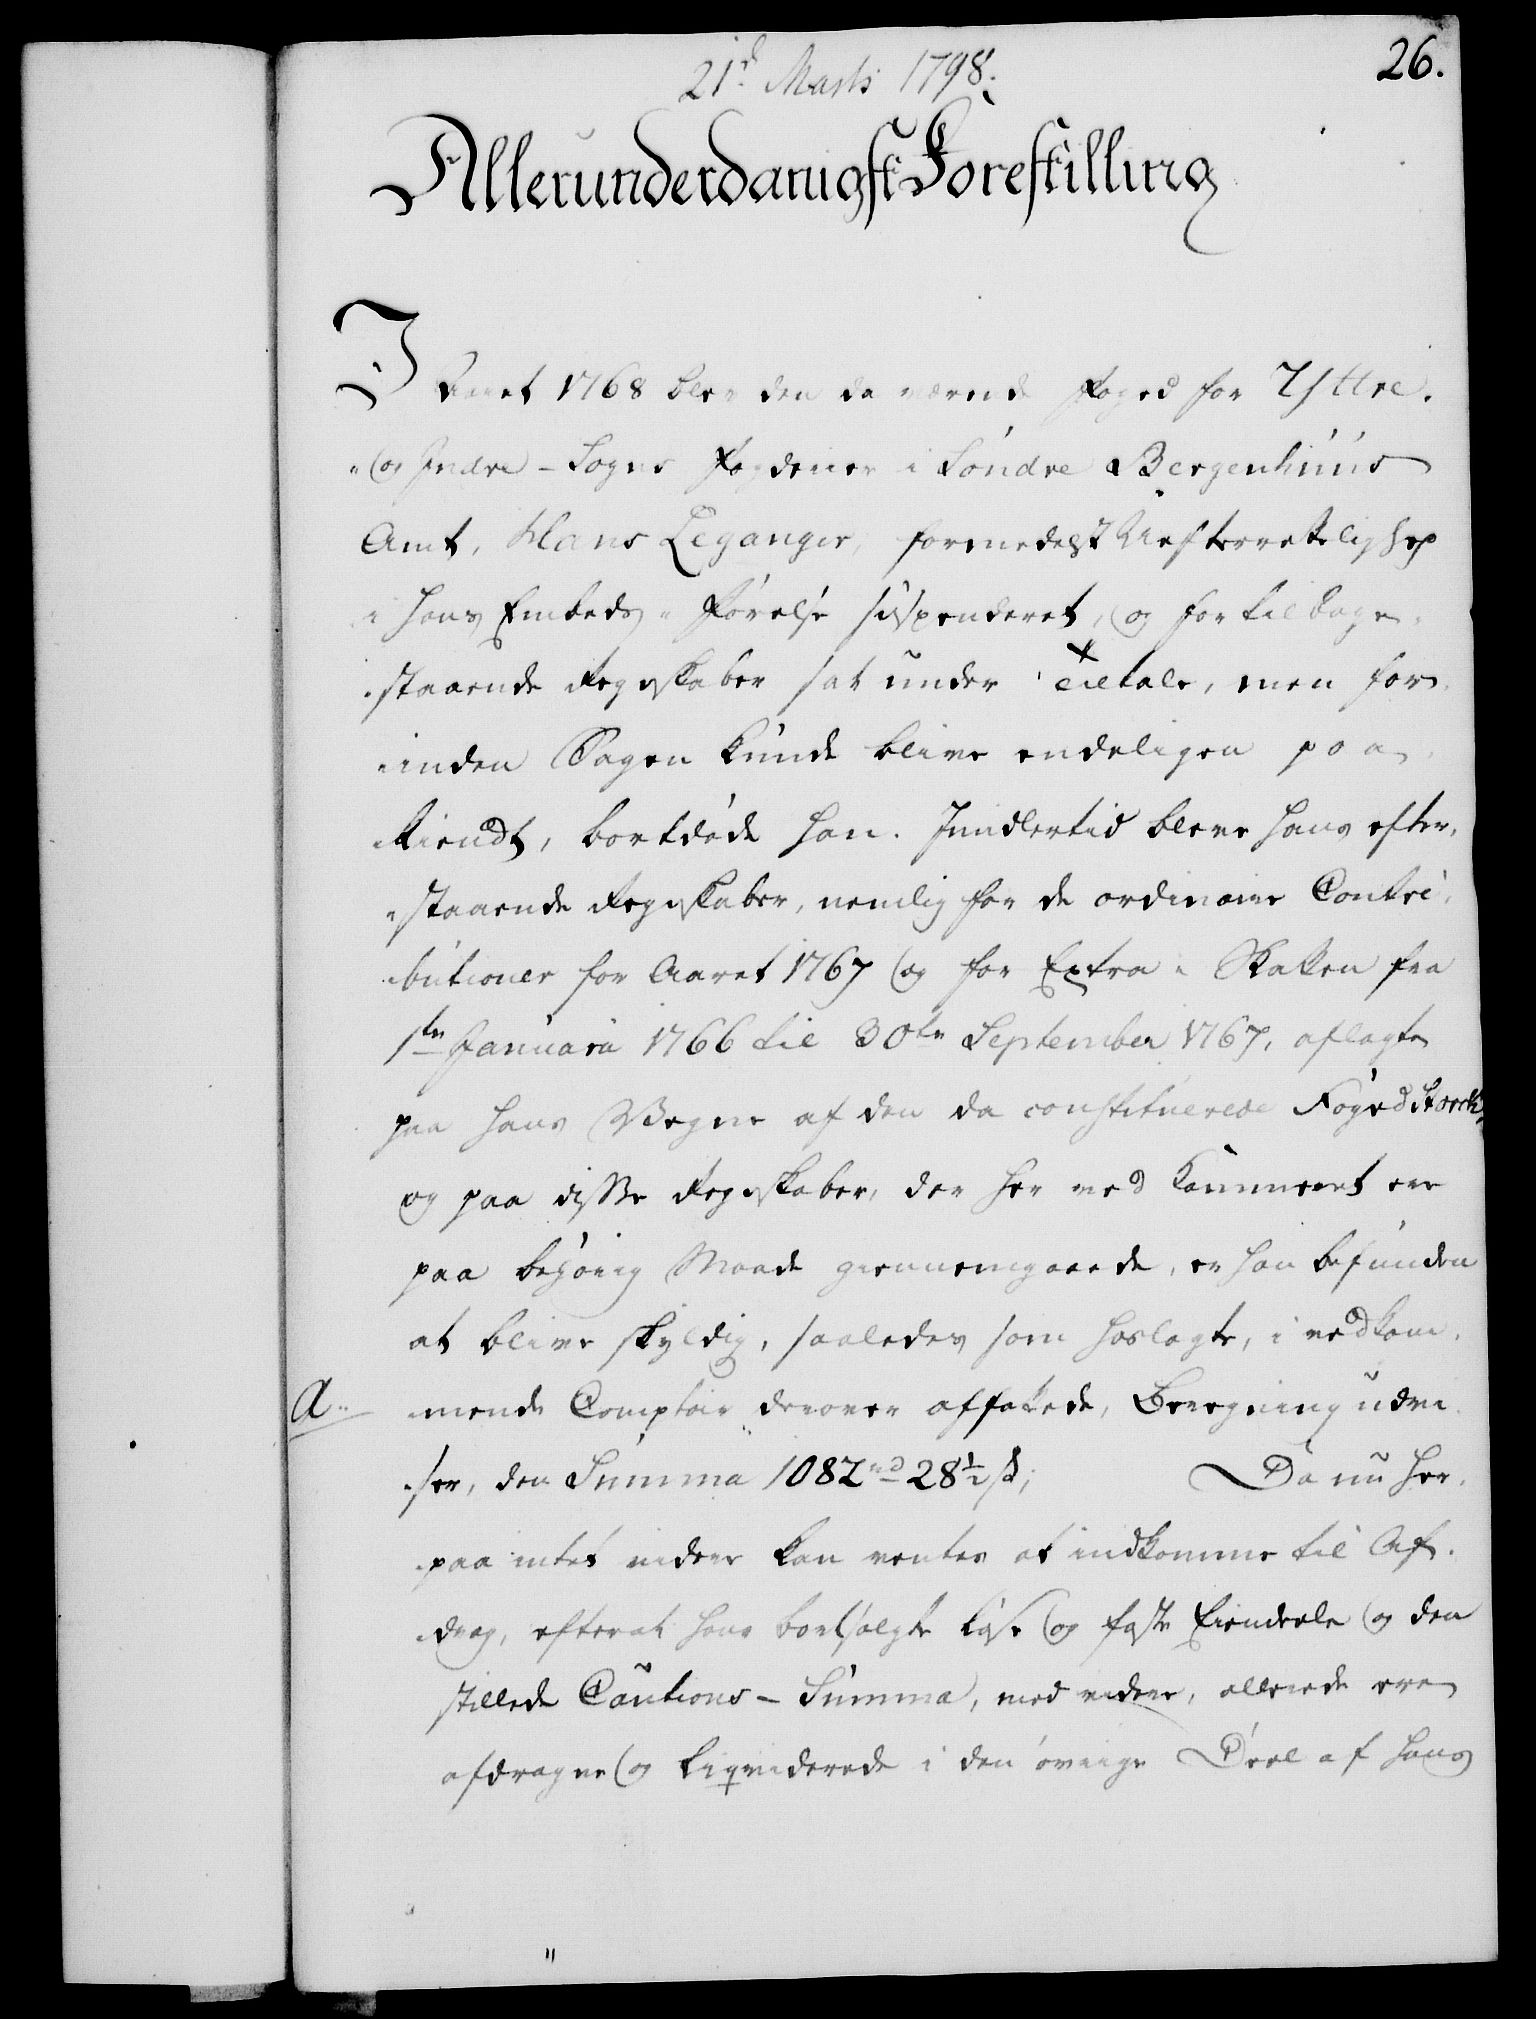 26.
21d Marts 1798.
Allerunderdanigst Forestilling
I Aaret 1768 blev den da værende Foged for Yttre-
og Indre-Sogns Fogderier i Søndre Bergenhuus
Amt, Hans Leganger, formedelst Uefterrettelighed
i hans Embeds-Førelse suspenderet, og for tilbage-
staaende Regnskaber sat under Tiltale, men for-
inden Sagen kunde blive endeligen paa-
kiendt, bortdøde han. Imidlertid bleve hans efter-
staaende Regnskaber, nemlig for de ordinaire Contri-
butioner for Aaret 1767 og for Extra-Skatten fra
1te Januarii 1766 til 30te September 1767, aflagte
paa hans Vegne af den da constituerede Foged Storch,
og paa disse Regnskaber, der her ved Kammeret ere
paa behørig Maade giennemgaaede, er han befunden
at blive skyldig, saaledes som hoslagte, i vedkom-
A. mende Comptoir derover affattede, Beregning udvi-
ser, den Summa 1082 rd 28½ ß; Da nu her-
paa intet videre kan ventes at indkomme til Af-
drag, efterat hans bortsolgte Løse og faste Eiendeele og den
stillede Cautions-Summa, med videre, allerede ere
afdragne og liqviderede i den øvrige Deel af hans